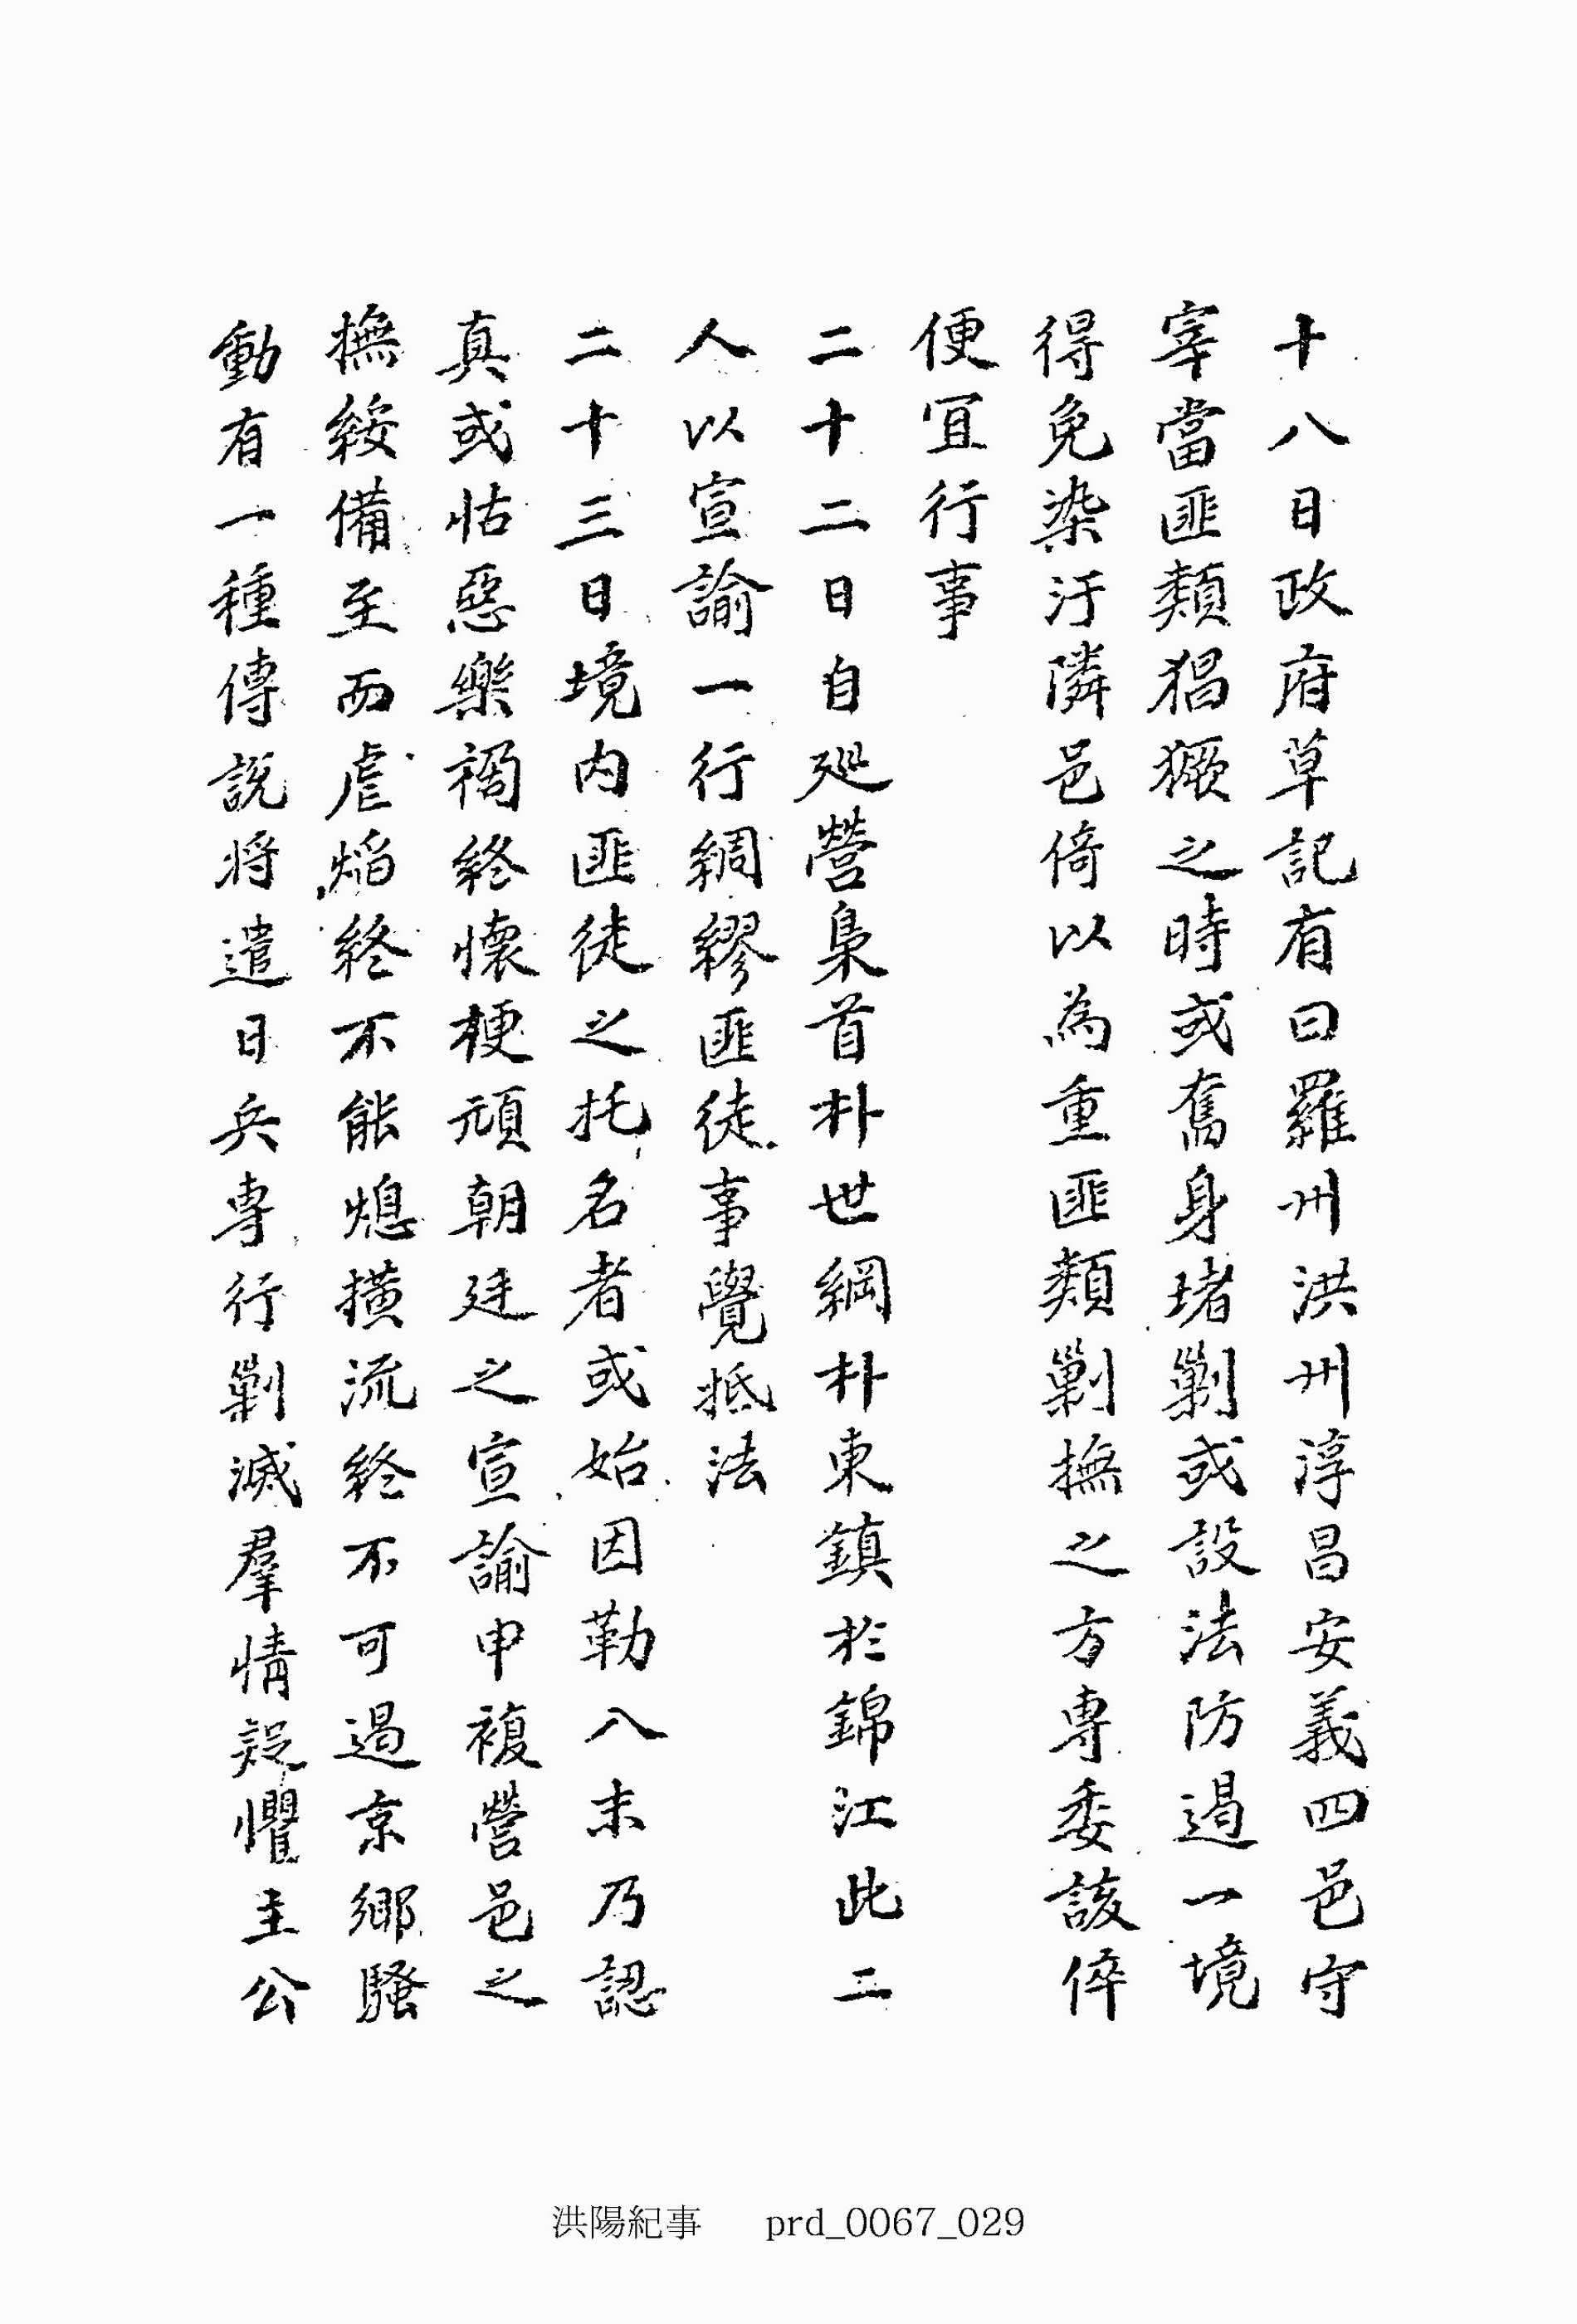 十八日政府草記有曰羅州洪州淳昌安義四邑守
宰當匪類猖獗之時或奮身堵剿或設法防遏一境
得免染汙隣邑倚以為重匪類剿撫之方專委該倅
便宜行事
二十二日自廵營梟首朴世綱朴東鎮於錦江此二
人以宣諭一行綢繆匪徒事覺抵法
二十三日境内匪徒之托名者或始因勒入末乃認
真或怙惡樂禍終懷梗頑朝廷之宣諭申複營邑之
撫綏備至而虐焰終不能熄橫流終不可遏京鄉騷
動有一種傳說将遣日兵専行剿滅羣情疑懼主公
洪陽紀事 prd_0067_029